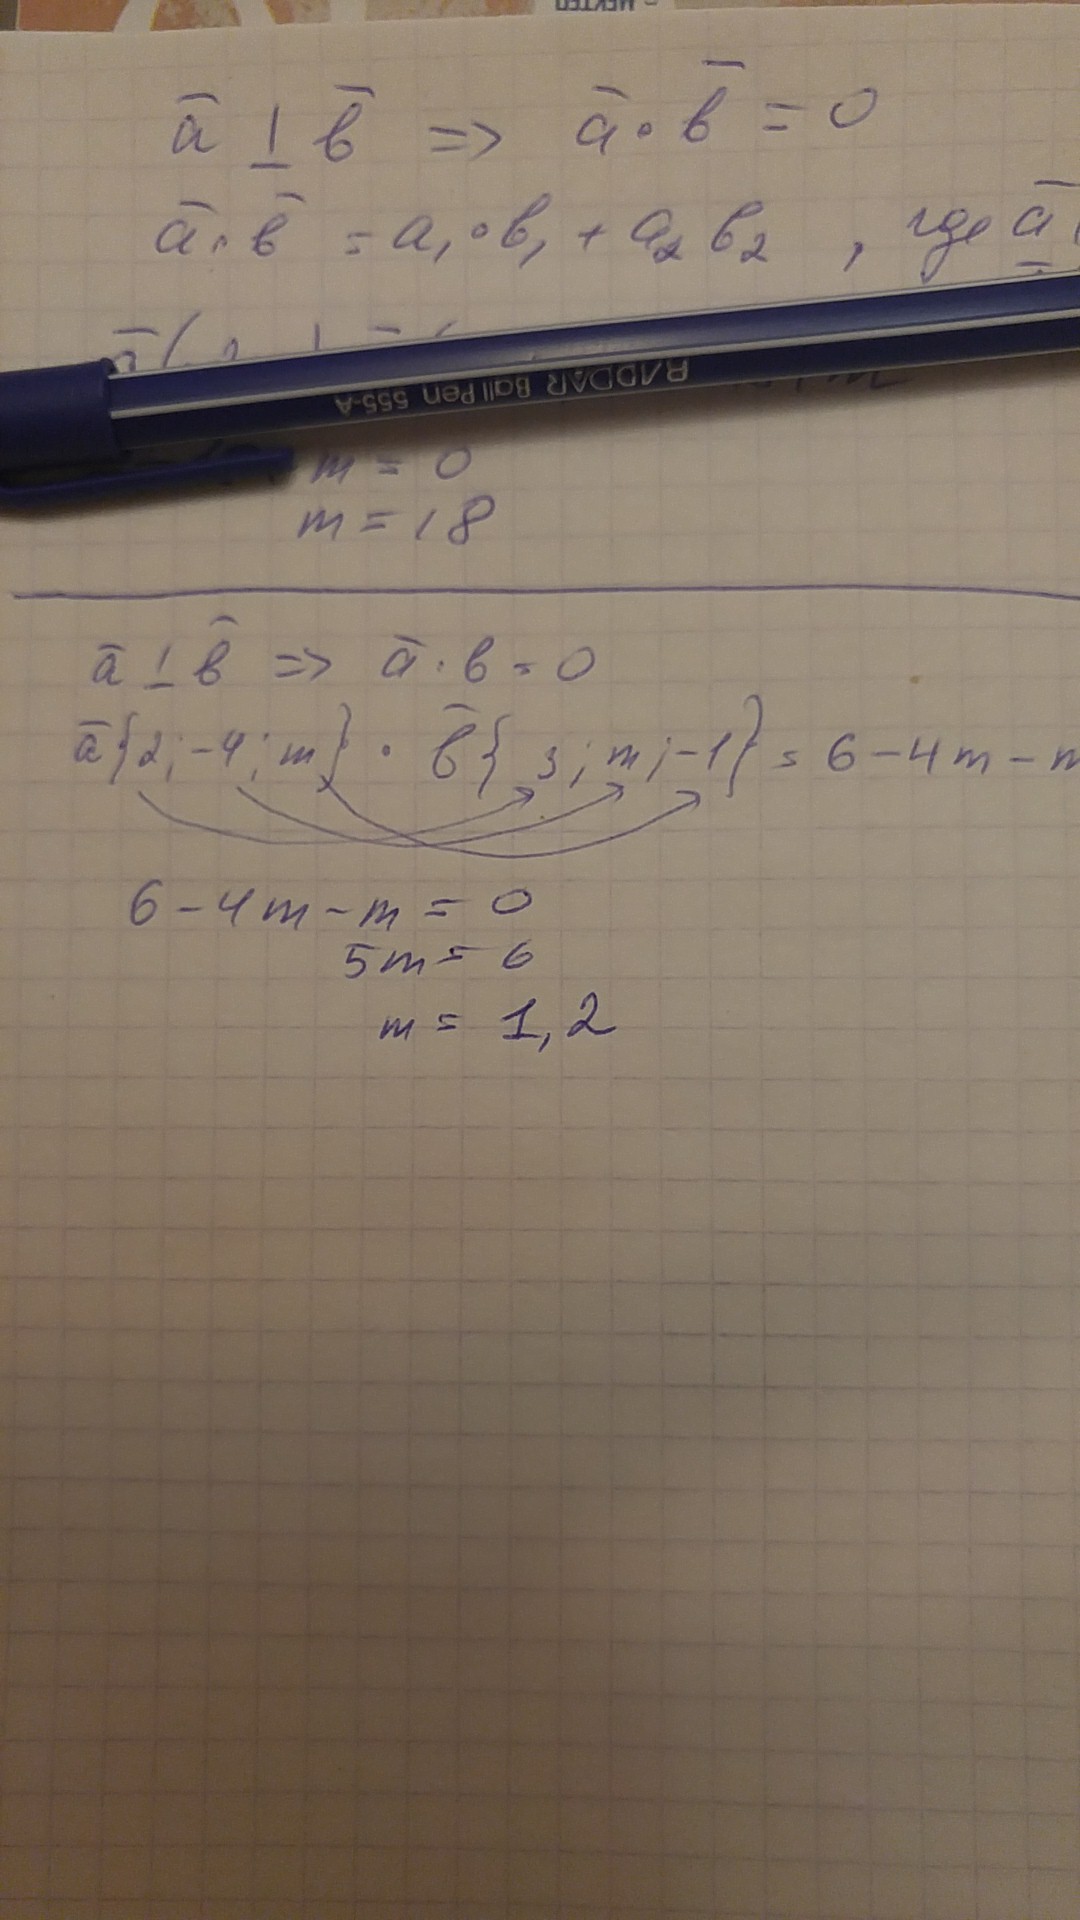 МЕКТЕП
ā ⊥ b̄ => ā · b̄ = 0
ā · b̄ = a₁ · b₁ + a₂ b₂ , где ā
RADDAR Ball Pen 555-A
m = 0
m = 18
ā ⊥ b̄ => ā · b = 0
ā{2; -4; m} · b̄{3; m; -1} = 6 - 4m - m
6 - 4m - m = 0
5m = 6
m = 1,2